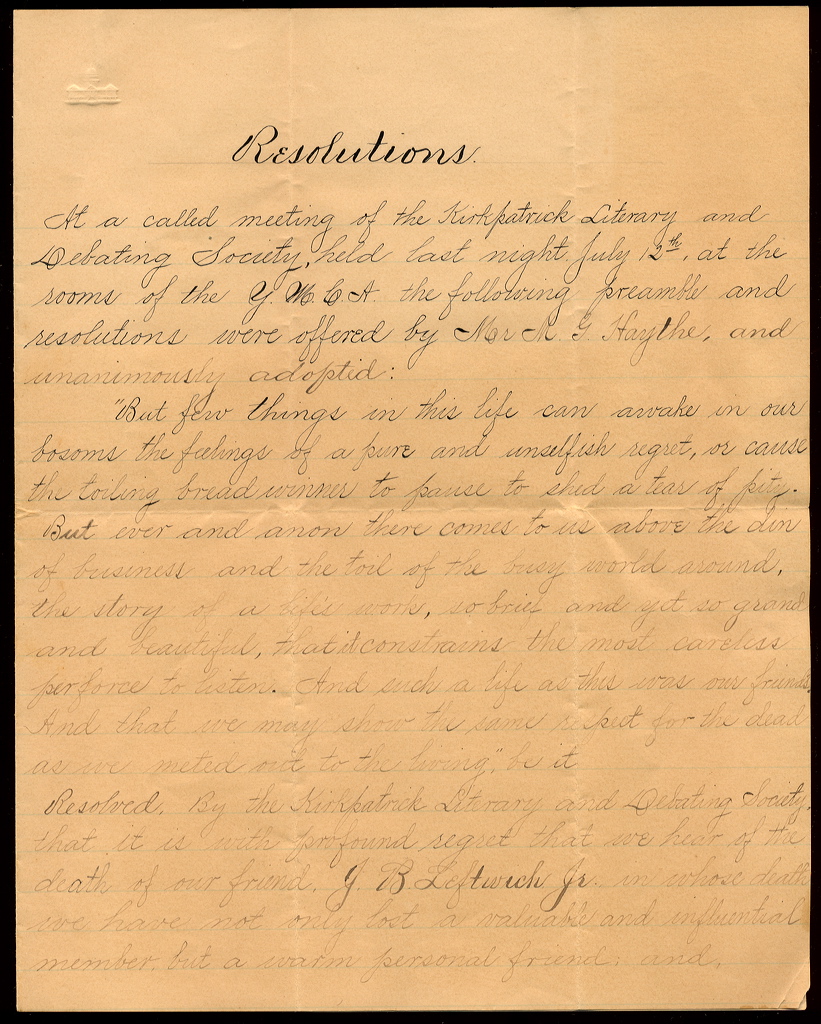 Resolutions.
At a called meeting of the Kirkpatrick Literary and
Debating Society, held last night July 12th, at the
rooms of the Y. M. C. A. the following preamble and
resolutions were offered by Mr M. G. Haythe, and
unanimously adopted:
"But few things in this life can awake in our
bosoms the feelings of a pure and unselfish regret, or cause
the toiling bread winner to pause to shed a tear of pity.
But ever and anon there comes to us above the din
of business and the toil of the busy world around,
the story of a life's work, so brief and yet so grand
and beautiful, that it constrains the most careless
perforce to listen. And such a life as this was our friends,
And that we may show the same respect for the dead
as we meted out to the living", be it
Resolved, By the Kirkpatrick Literary and Debating Society,
that it is with profound regret that we hear of the
death of our friend, J. B. Leftwich Jr. in whose death
we have not only lost a valuable and influential
member, but a warm personal friend; and,